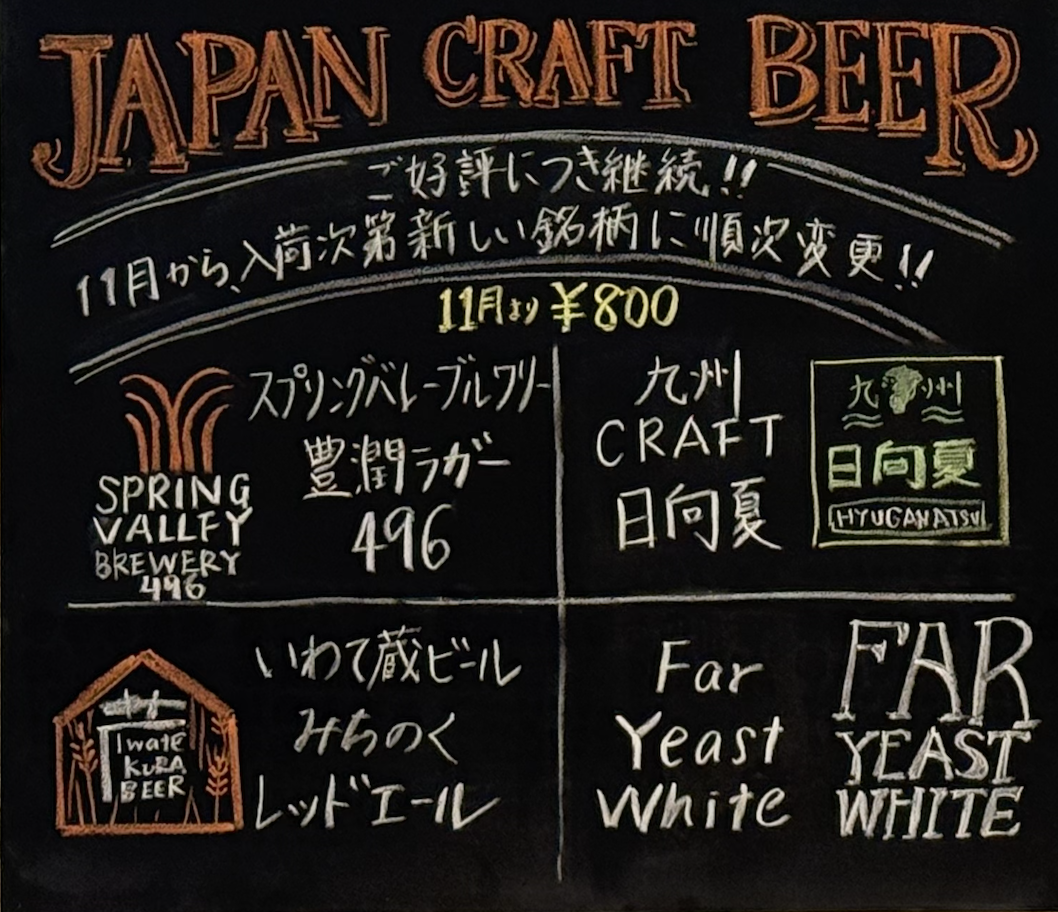 JAPAN CRAFT BEER
ご好評につき継続!!
11月から、入荷次第新しい銘柄に順次変更!!
11月より ¥800
SPRING
VALLEY
BREWERY
496
スプリングバレーブルワリー
豊潤ラガー
496
九州
CRAFT
日向夏
九州
日向夏
HYUGANATSU
Iwate
KURA
BEER
いわて蔵ビール
みちのく
レッドエール
Far
Yeast
White
FAR
YEAST
WHITE